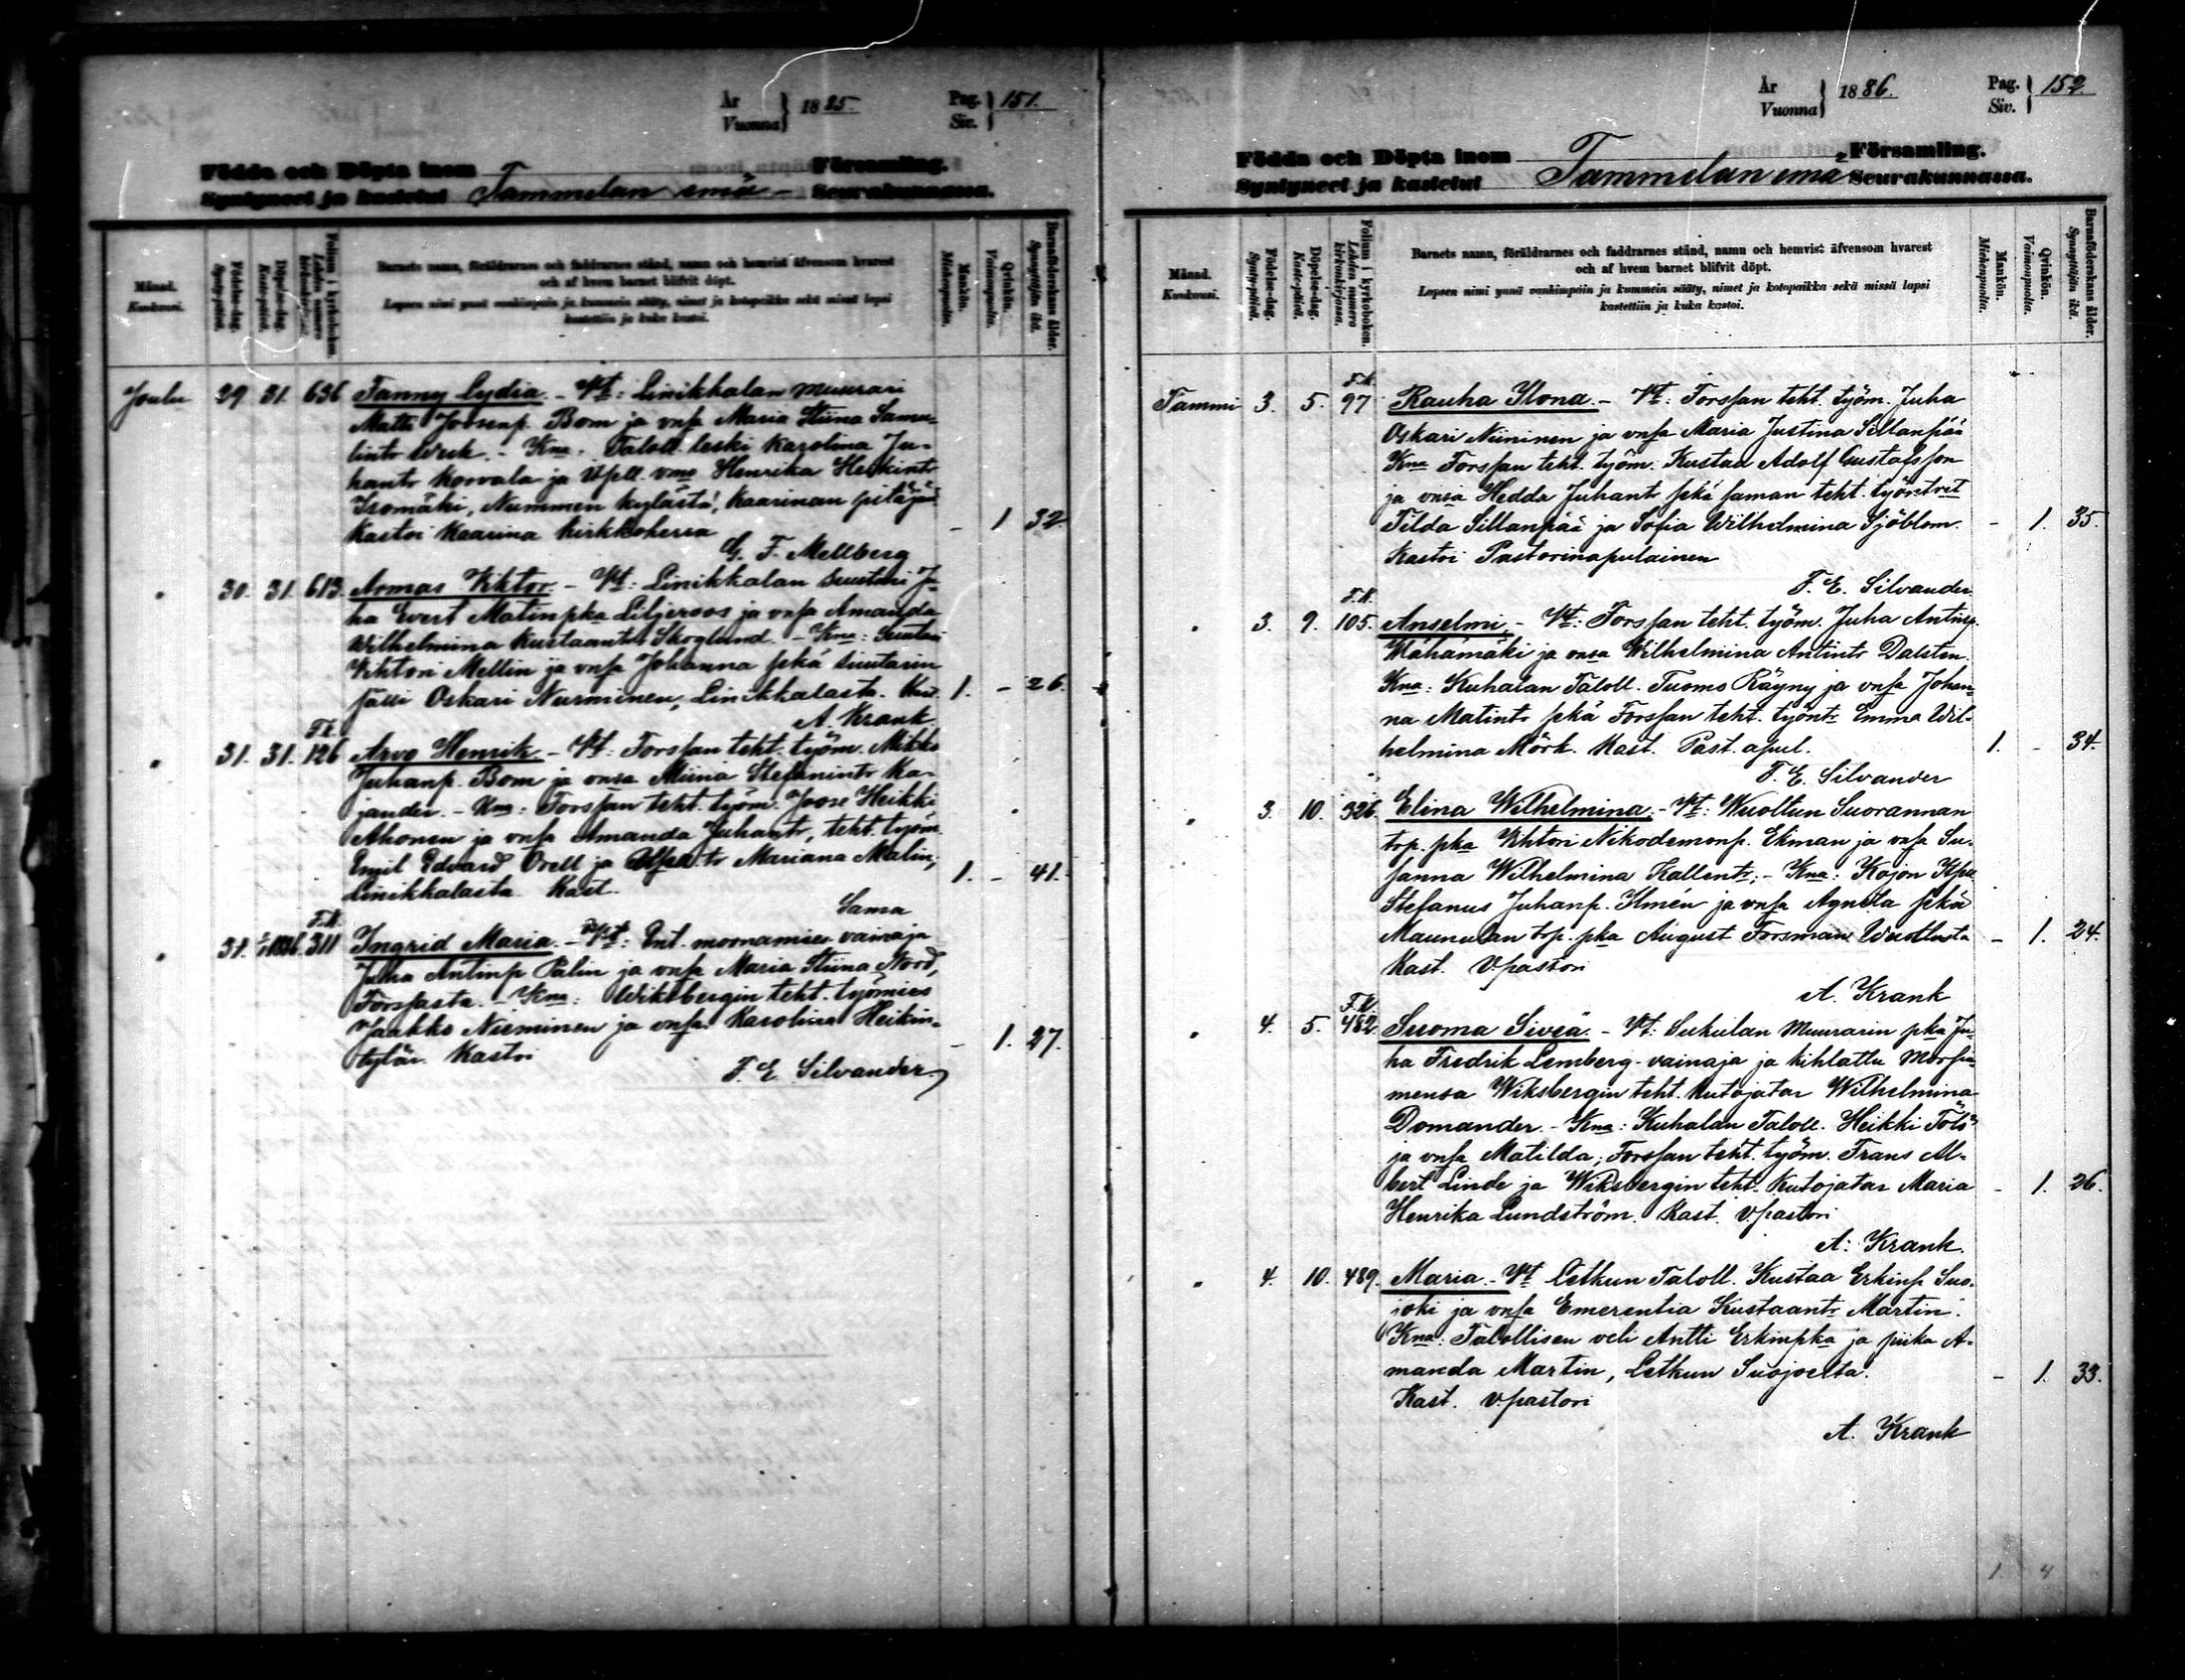 År
Vuonna } 1885.
Pag.
Siv. } 151.
Födda och Döpta inom Församling.
Syntyneet ja kastetut Tammelan emä- Seurakunnassa.
Månad.
Kuukausi.
Födelse-dag.
Synty-päivä.
Döpelse-dag.
Kaste-päivä.
Folium i kyrkoboken.
Lehden numero kirkonkirjassa.
Barnets namn, föräldrarnes och faddrarnes stånd, namn och hemvist äfvensom hvarest
och af hvem barnet blifvit döpt.
Lapsen nimi ynnä vanhimpain ja kummein sääty, nimet ja kotopaikka sekä missä lapsi
kastettiin ja kuka kastoi.
Mankön.
Miehenpuolta.
Qvinkön.
Vaimonpuolta.
Barnaföderskans ålder.
Synnyttäjän ikä.
Joulu 29 31. 636 Fanny Lydia. - Vt: Linikkalan muurari
Matti Joosenp. Bom ja vnsa Maria Stiina Samu-
lintr Wirk. - Kna. Taloll. leski Karolina Ju-
hantr Korvala ja Ylpll. vmo Henrika Heikintr
Isomäki, Nummen kylästä, Kaarinan pitäjää
Kastoi Kaarina Kirkkoherra - 1 32
G. F. Mellberg
30. 31. 613. Armas Viktor. - Vt: Linikkalan Suutari Ju-
ha Evert Matinpka Liljeroos ja vnsa Amanda
Wilhelmina Kustaantr Skoglund. - Kna: Suutari
Vihtori Mellin ja vnsa Johanna sekä suutarin
sälli Oskari Nurminen, Linikkalasta. Kast. 1. - 26.
A. Krank.
F.k.
31. 31. 126 Arvo Henrik - Vt: Forssan teht. työm. Mikko
Juhanp. Bom ja vnsa Miina Stefanintr Ka-
jander. - Kna: Forssan teht. työm. Joose Heikki
Ahonen ja vnsa Amanda Juhantr, teht. työm.
Emil Edvard Orell ja Mariana Malin,
Linikkalasta Kast. 1. - 41.
Sama
F.k.
31. 1/1 1886. 311 Ingrid Maria. - Vt: Ent. vainaja
Juha Antinp Palin ja vnsa Maria Stiina Nord,
Forssasta. - Kna: Wiksbergin teht. työmies
Jaakko Nieminen ja vnsa Karolina Heikin-
tytär. Kastoi - 1. 27.
F. E. Silvander
År
Vuonna } 1886.
Pag.
Siv. } 152.
Födda och Döpta inom Församling.
Syntyneet ja kastetut Tammelan emä Seurakunnassa.
Månad.
Kuukausi.
Födelse-dag.
Synty-päivä.
Döpelse-dag.
Kaste-päivä.
Folium i kyrkoboken.
Lehden numero kirkonkirjassa.
Barnets namn, föräldrarnes och faddrarnes stånd, namn och hemvist äfvensom hvarest
och af hvem barnet blifvit döpt.
Lapsen nimi ynnä vanhimpain ja kummein sääty, nimet ja kotopaikka sekä missä lapsi
kastettiin ja kuka kastoi.
Mankön.
Miehenpuolta.
Qvinkön.
Vaimonpuolta.
Barnaföderskans ålder.
Synnyttäjän ikä.
F.k.
Tammi 3. 5. 97 Rauha Ilona. - Vt: Forssan teht. työm. Juha
Oskari Niininen ja vnsa Maria Justina Sillanpää
Kna Forssan teht. työm. Kustaa Adolf Gustafsson
ja vnsa Hedda Juhantr sekä saman teht. työntret
Tilda Sillanpää ja Sofia Wilhelmina Sjöblom. - 1. 35.
Kastoi Pastorinapulainen
F. E. Silvander.
F.k.
3. 9. 105. Anselmi. - Vt: Forssan teht. työm. Juha Antinp.
Wähämäki ja vnsa Wilhelmina Antintr Dalsten.
Kna: Kuhalan Taloll. Tuomo Räyny ja vnsa Johan-
na Matintr sekä Forssan teht. työntr Emma Wil-
helmina Mörk. Kast. Past. apul. 1. - 34.
F. E. Silvander
3. 10. 326. Elina Wilhelmina. - Vt: Wuoltun Suorannan
trp. pka Vihtori Nikodemonp. Ekman ja vnsa Su-
sanna Wilhelmina Kallentr. - Kna: Kojon
Stefanus Juhanp. Ilmén ja vnsa Agneta sekä
Maunulan trp. pka August Forsman Wuoltusta - 1. 24.
Kast. V.pastori
A. Krank
F.k.
4. 5. 482 Suoma Siveä. - Vt: Sukulan Muurarin pka Ju-
ha Fredrik Lemberg-vainaja ja kihlattu Morsia-
mensa Wiksbergin teht. Kutojatar Wilhelmina
Domander. - Kna: Kuhalan Taloll. Heikki Tölö
ja vnsa Matilda, Forssan teht. työm. Frans Al-
bert Linde ja Wiksbergin teht. Kutojatar Maria - 1. 26.
Henrika Lundström. Kast. V.pastori
A. Krank.
4. 10. 489. Maria. - Vt Letkun Taloll. Kustaa Erkinp Suo-
joki ja vnsa Emerentia Kustaantr Martin.
Kna: Talollisen veli Antti Erkinpka ja piika A-
manda Martin, Letkun Suojoelta. - 1. 33.
Kast. V.pastori
A. Krank
1 4